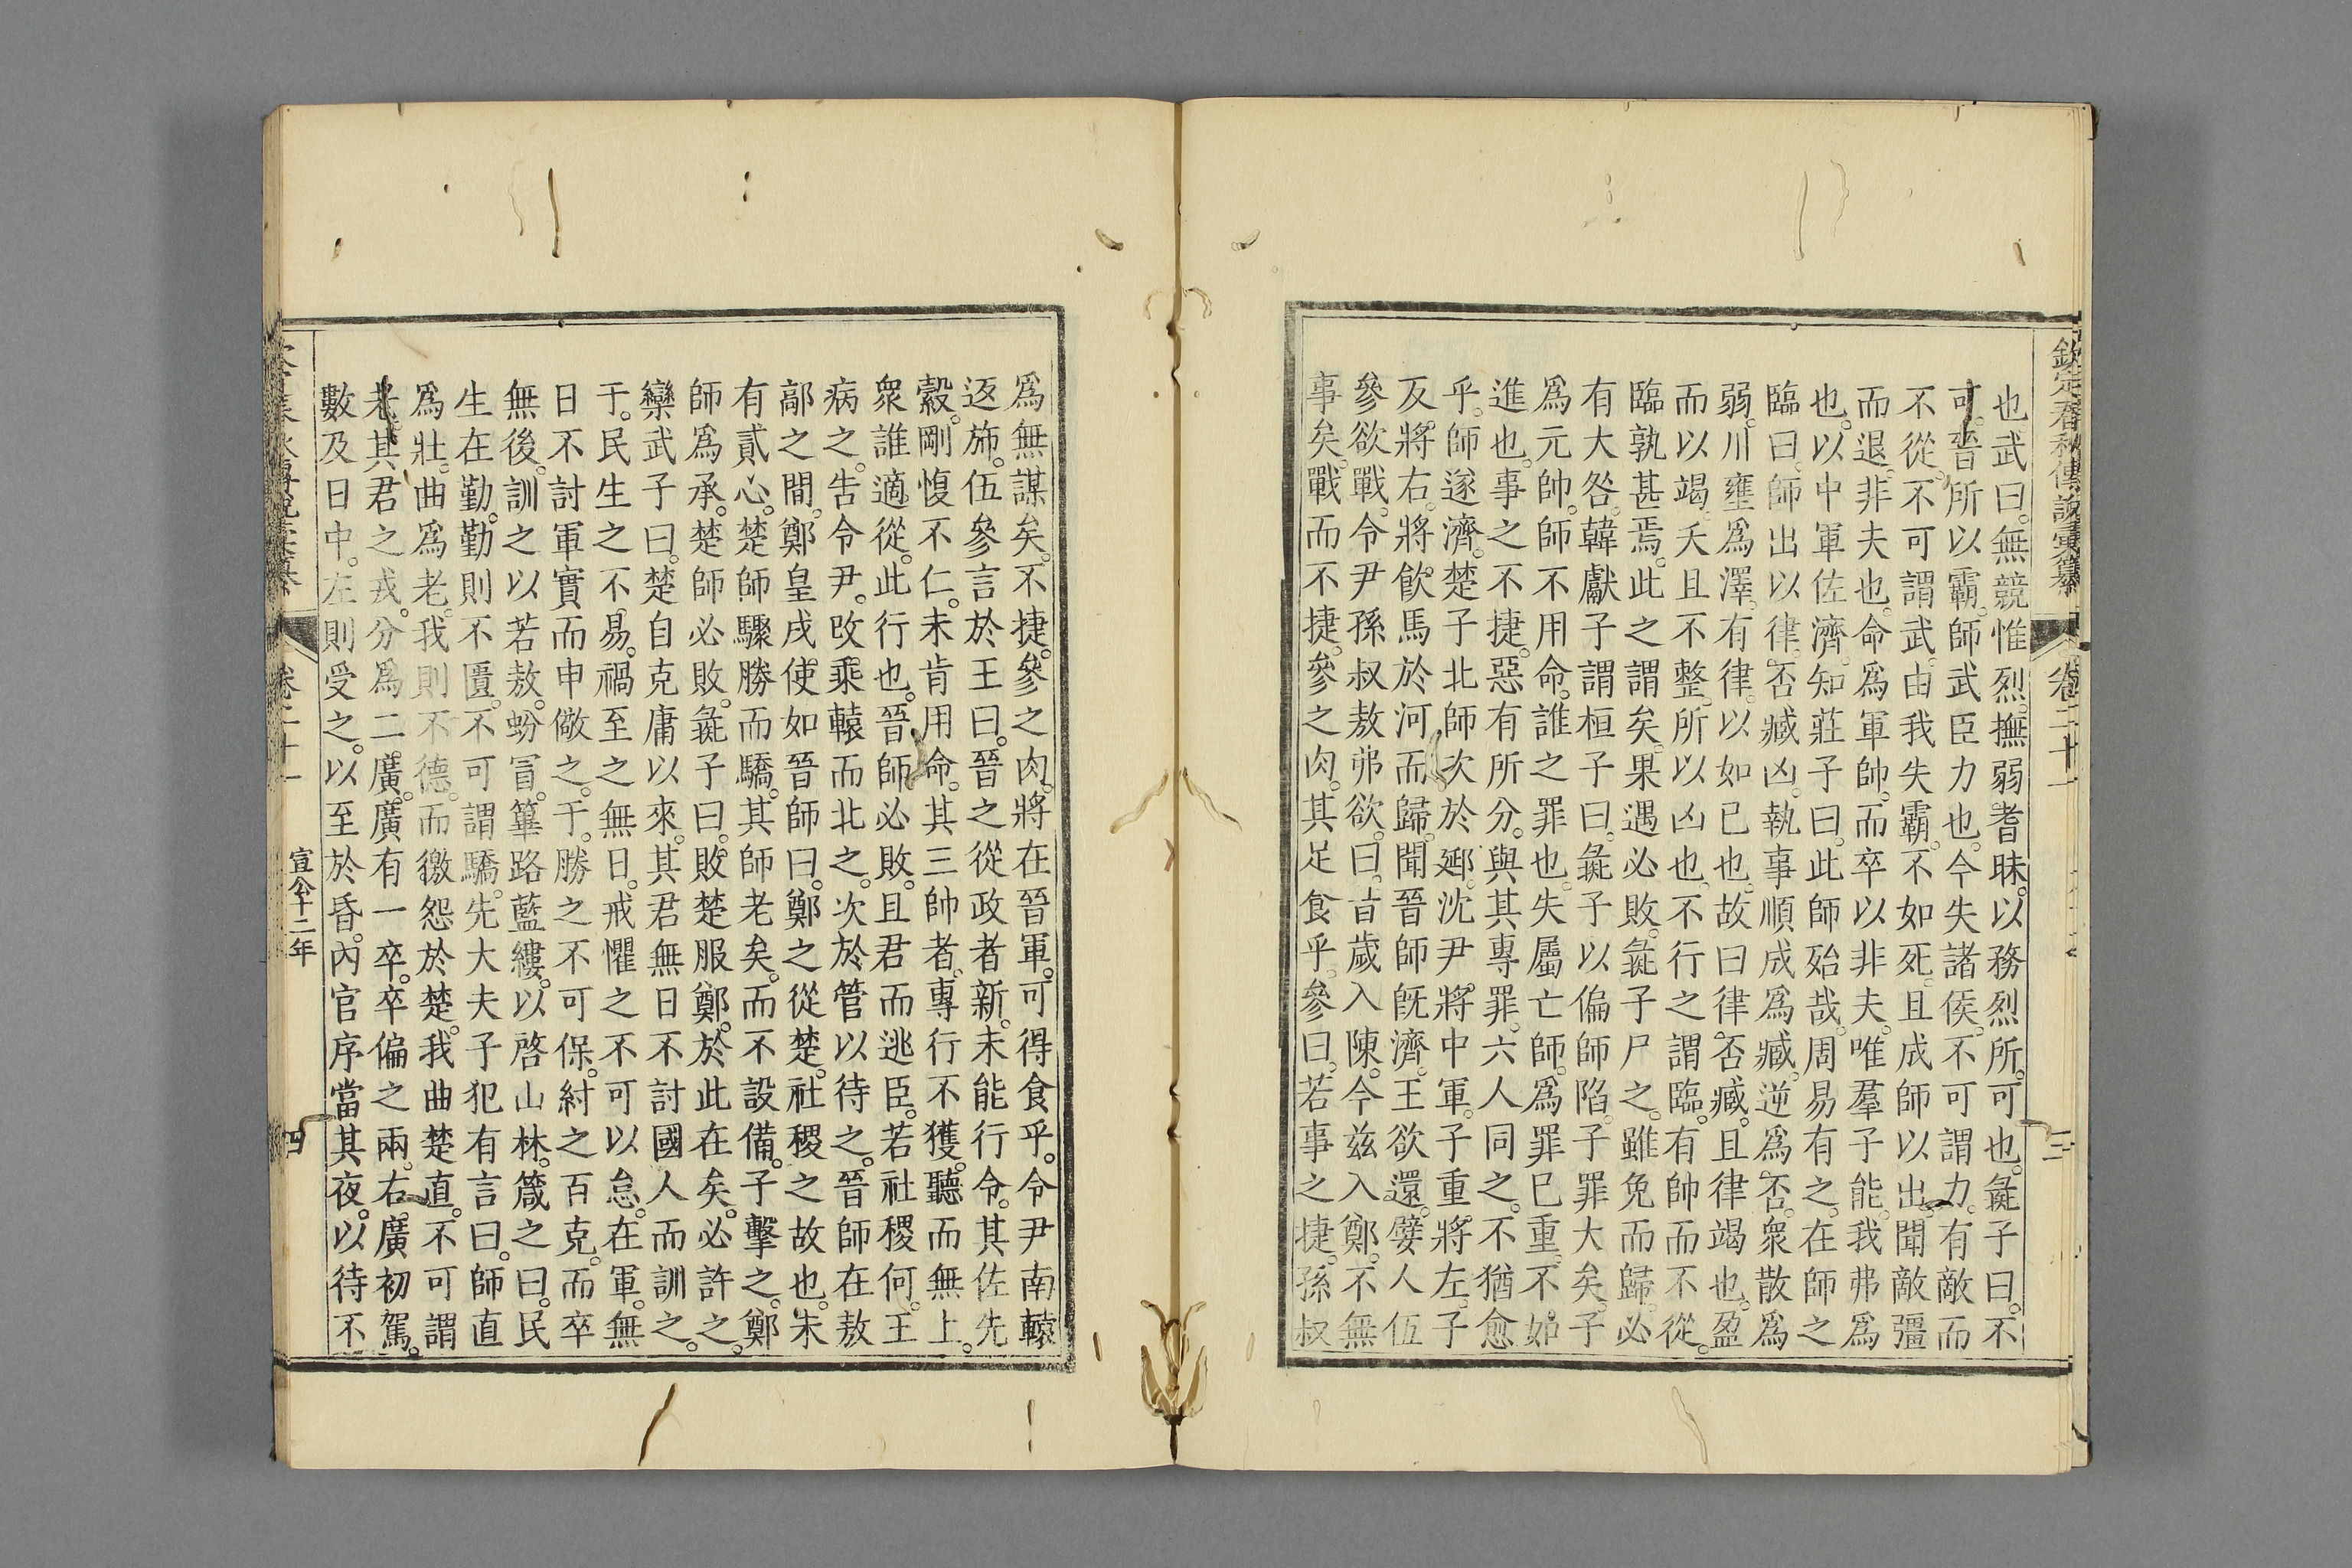 欽定春秋傳說彙纂 卷二十一 三
也武曰。無競惟烈。撫弱耆昧。以務烈所。可也。彘子曰。不
可。晉所以霸。師武臣力也。今失諸侯。不可謂力。有敵而
不從。不可謂武。由我失霸。不如死。且成師以出。聞敵彊
而退。非夫也。命爲軍帥。而卒以非夫。唯羣子能。我弗爲
也。以中軍佐濟。知莊子曰。此師殆哉。周易有之。在師之
臨曰。師出以律。否臧凶。執事順成爲臧。逆爲否。衆散爲
弱。川壅爲澤。有律。以如已也。故曰律。否臧。且律竭也。盈
而以竭。夭且不整。所以凶也。不行之謂臨。有帥而不從。
臨孰甚焉。此之謂矣。果遇必敗。彘子尸之。雖免而歸。必
有大咎。韓獻子謂桓子曰。彘子以偏師陷。子罪大矣。子
爲元帥。師不用命。誰之罪也。失屬亡師。爲罪已重。不如
進也。事之不捷。惡有所分。與其專罪。六人同之。不猶愈
乎。師遂濟。楚子北師次於郔。沈尹將中軍。子重將左。子
反將右。將飮馬於河而歸。聞晉師旣濟。王欲還。嬖人伍
參欲戰。令尹孫叔敖弗欲。曰。昔歲入陳。今茲入鄭。不無
事矣。戰而不捷。參之肉。其足食乎。參曰。若事之捷。孫叔
爲無謀矣。不捷。參之肉。將在晉軍。可得食乎。令尹南轅
返斾。伍參言於王曰。晉之從政者新。未能行令。其佐先
縠。剛愎不仁。未肯用命。其三帥者。專行不獲。聽而無上。
衆誰適從。此行也。晉師必敗。且君而逃臣。若社稷何。王
病之。吿令尹。攺乘轅而北之。次於管以待之。晉師在敖
鄗之間。鄭皇戌使如晉師曰。鄭之從楚。社稷之故也。未
有貳心。楚師驟勝而驕。其師老矣。而不設備。子擊之。鄭
師爲承。楚師必敗。彘子曰。敗楚服鄭。於此在矣。必許之。
欒武子曰。楚自克庸以來。其君無日不討國人而訓之。
于。民生之不易。禍至之無日。戒懼之不可以怠。在軍。無
日不討軍實而申儆之。于。勝之不可保。紂之百克。而卒
無後。訓之以若敖。蚡冒。篳路藍縷。以啓山林。箴之曰。民
生在勤。勤則不匱。不可謂驕。先大夫子犯有言曰。師直
爲壯。曲爲老。我則不德。而徼怨於楚。我曲楚直。不可謂
老。其君之戎。分爲二廣。廣有一卒。卒偏之兩。右廣初駕。
數及日中。左則受之。以至於昏。內官序當其夜。以待不
卷二十一 宣公十二年 四